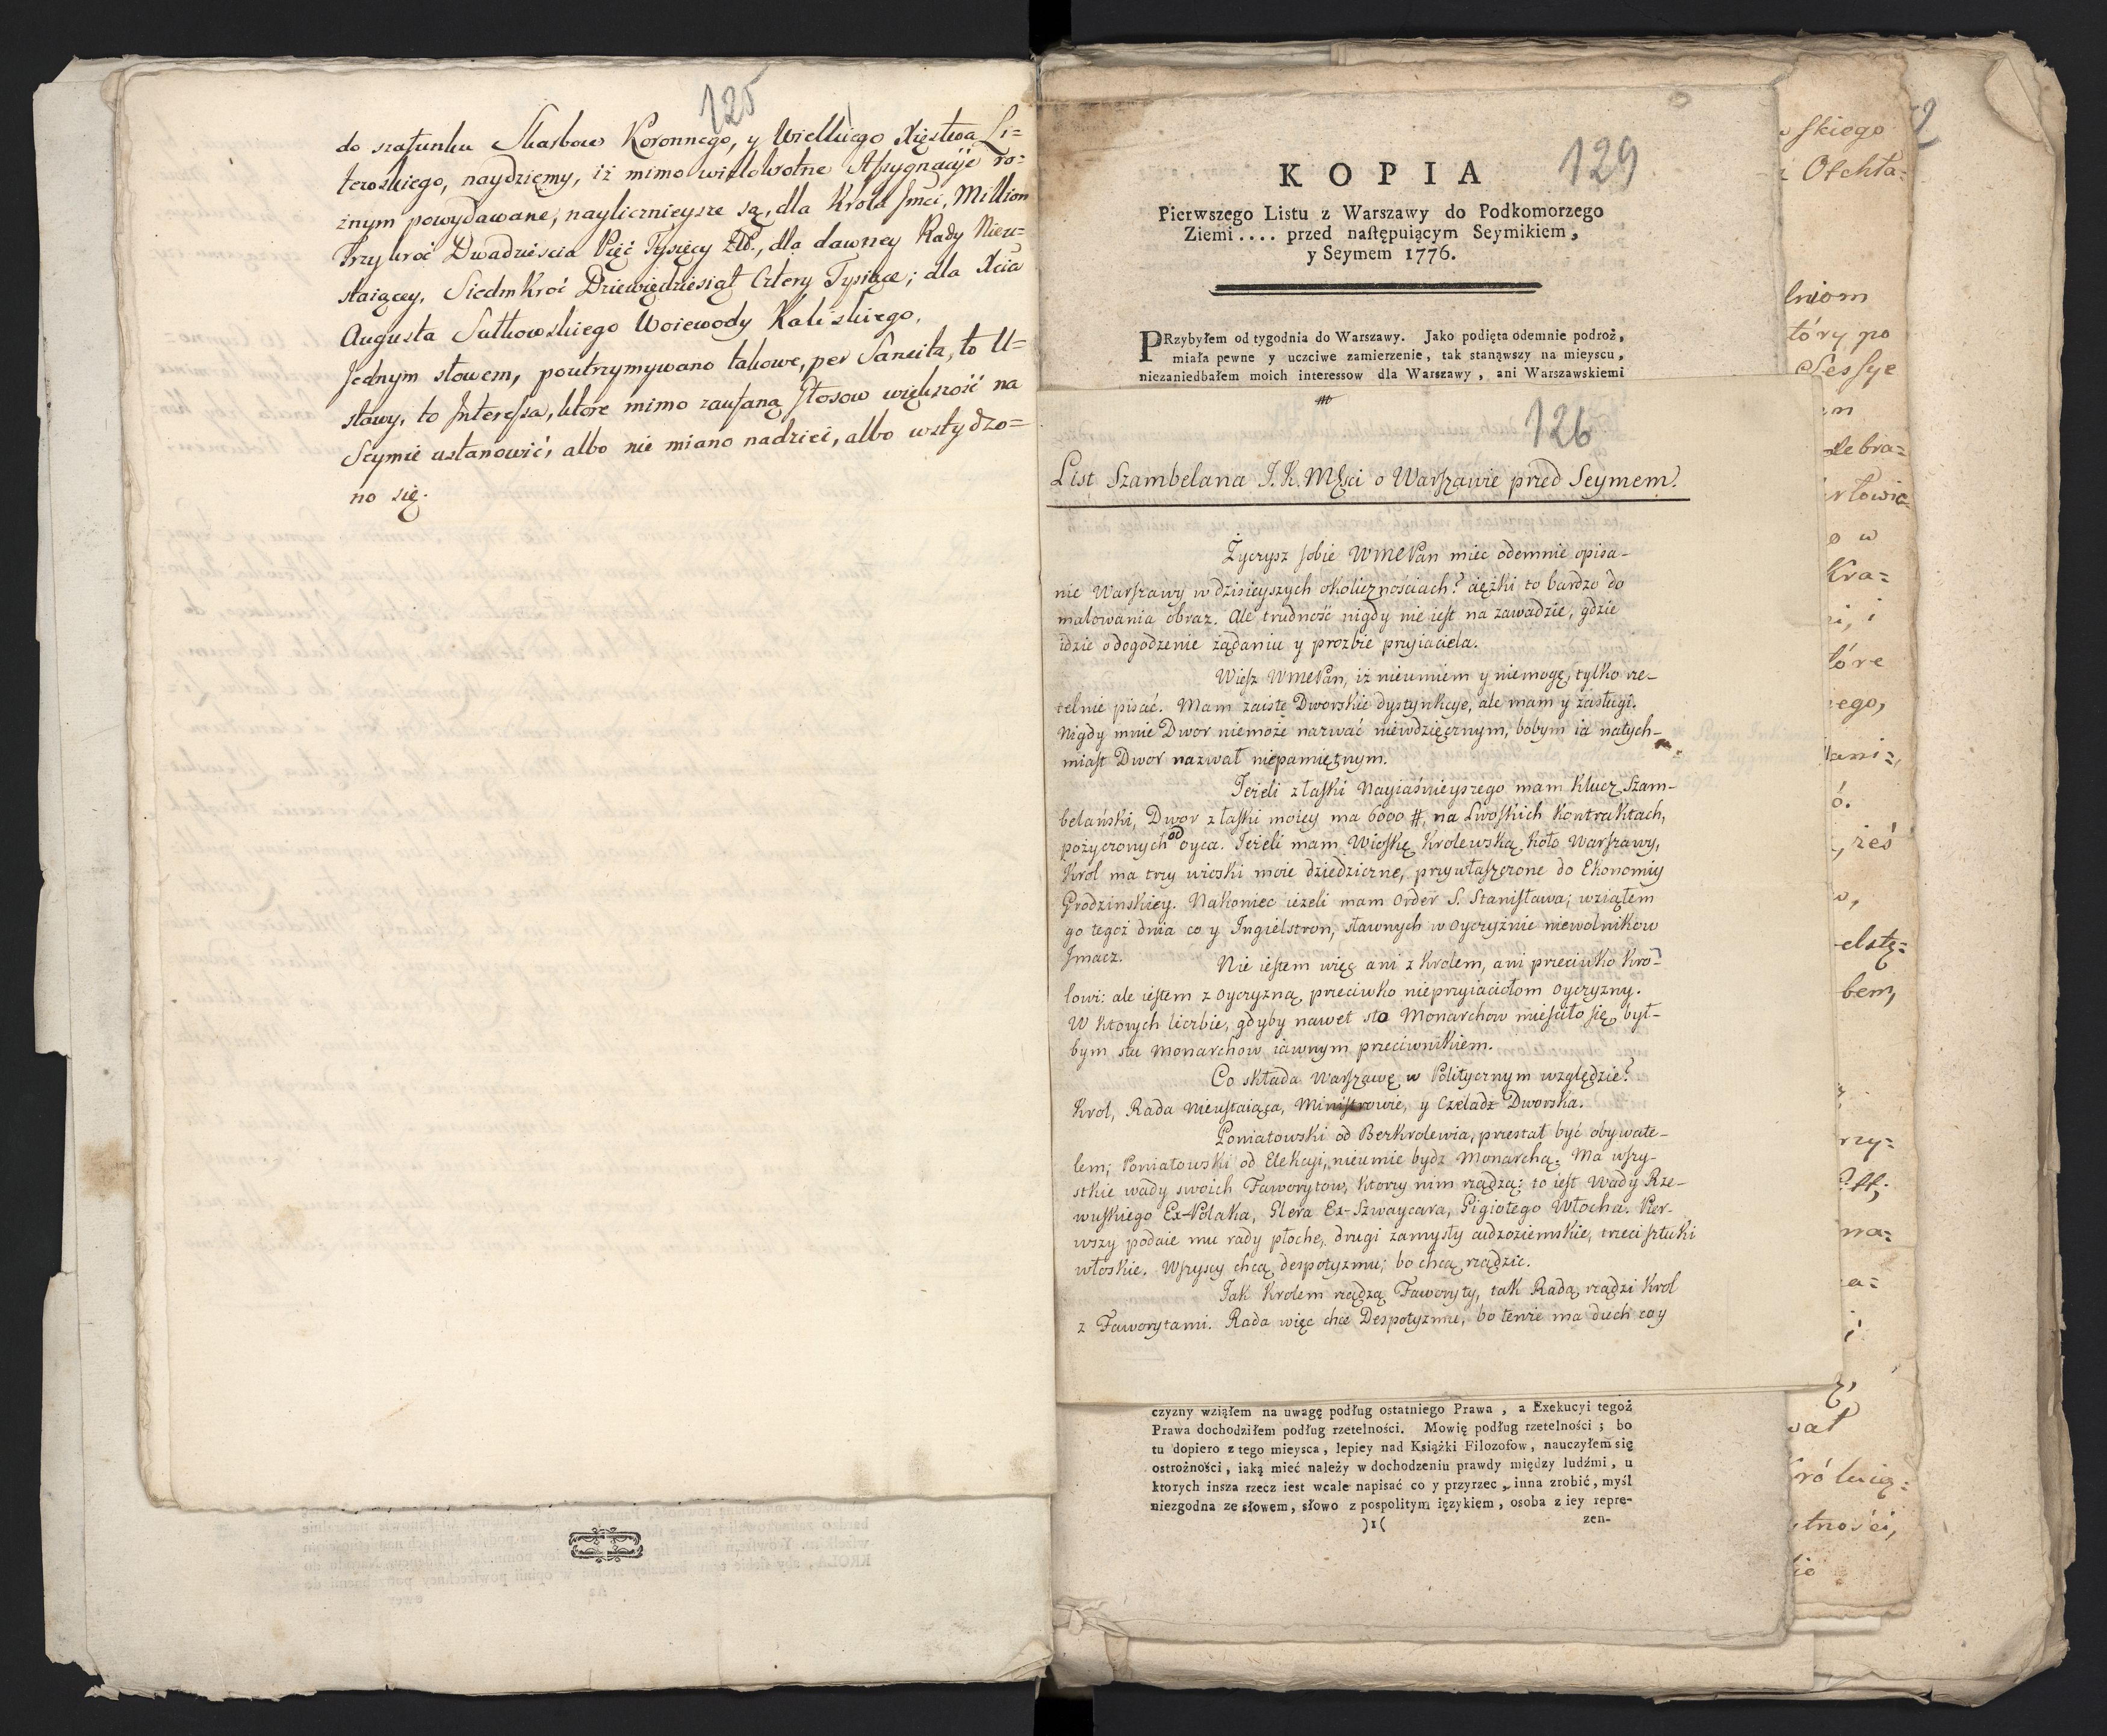 125
do szafunku Skarbow Koronnego, y Wielkiego Xięstwa Li=
tewskiego, naydziemy, iż mimo wielowolne Assygnacyje ro=
żnym powydawane, naylicznieysze są, dla Krola Jmci, Million
Trzykroć Dwadzieścia Pięć Tysięcy Złł., dla dawney Rady Nieu=
staiącey, Siedmkroć Dziewiędziesiąt Cztery Tysiące; dla Xcia
Augusta Sułkowskiego Woiewody Kaliskiego.
Jednym słowem, poutrzymywano takowe, per Sancita, to U=
stawy, to Interessa, ktore mimo zaufaną głosow większość na
Seymie ustanowić, albo nie miano nadziei, albo wstydzo=
no się.
129
KOPIA
Pierwszego Listu z Warszawy do Podkomorzego
Ziemi.... przed następuiącym Seymikiem,
y Seymem 1776.
PRzybyłem od tygodnia do Warszawy. Jako podięta odemnie podroż,
miała pewne y uczciwe zamierzenie, tak stanąwszy na mieyscu,
niezaniedbałem moich interessow dla Warszawy, ani Warszawskiemi
126
List Szambelana J. K. Mści o Warszawie przed Seymem.
Życzysz sobie WMC Pan miec odemnie opisa-
nie Warszawy w dzisieyszych okolicznościach? ciężki to bardzo do
malowania obraz. Ale trudność nigdy nie iest na zawadzie, gdzie
idzie o dogodzenie żądaniu y prozbie przyiaciela.
Wiesz WMC Pan, iż nieumiem y niemogę, tylko rze-
telnie pisać. Mam zaiste Dworskie dystynkcye, ale mam y zasługi.
Nigdy mnie Dwor niemoże nazwać niewdzięcznym, bobym ia natych-
miast Dwor nazwał niepamiętnym.
Jeżeli z łaski Nayiaśnieyszego mam Klucz Szam-
belański, Dwor z łaski moiey ma 6000 #, na Lwoskich Kontraktach,
pożyczonych od oyca. Jeżeli mam Wioskę Krolewską koło Warszawy,
Krol ma trzy wioski moie dziedziczne, przywłaszczone do Ekonomiy
Grodzinskiey. Nakoniec ieżeli mam Order S. Stanisława; wziąłem
go tegoż dnia co y Ingielstron, sławnych w oyczyźnie niewolnikow
Imacz.
Nie iestem więc ani z Krolem, ani przeciwko Kro-
lowi: ale iestem z oyczyzną, przeciwko nieprzyiaciołom oyczyzny.
W ktorych liczbie, gdyby nawet sto Monarchow mieściło się, był-
bym stu Monarchow iawnym przeciwnikiem.
Co składa Warszawę w Politycznym względzie?
Krol, Rada Nieustaiąca, Ministrowie, y Czeladź Dworska.
Poniatowski od Bezkrolewia, przestał być obywate-
lem; Poniatowski od Elekcyi, nieumie bydź Monarchą. Ma wszy-
stkie wady swoich Faworytow, ktorzy nim rządzą: to iest wady Rze-
wuskiego Ex-Polaka, Glera Ex-Szwaycara, Pigiotego Włocha. Pier-
wszy podaie mu rady płoche, drugi zamysły cudzoziemskie, trzeci sztuki
włoskie. Wszyscy chcą despotyzmu; bo chcą rządzic.
Jak Krolem rządzą Faworyty, tak Radą rządzi Krol
z Faworytami. Rada więc chce Despotyzmu, bo tenże ma duch co y
czyzny wziąłem na uwagę podług ostatniego Prawa, a Exekucyi tegoż
Prawa dochodziłem podług rzetelności. Mowię podług rzetelności; bo
tu dopiero z tego mieysca, lepiey nad Książki Filozofow, nauczyłem się
ostrożności, iaką mieć należy w dochodzeniu prawdy między ludźmi, u
ktorych insza rzecz iest wcale napisać co y przyrzec, inna zrobić, myśl
niezgodna ze słowem, słowo z pospolitym ięzykiem, osoba z iey repre-
)1( zen-